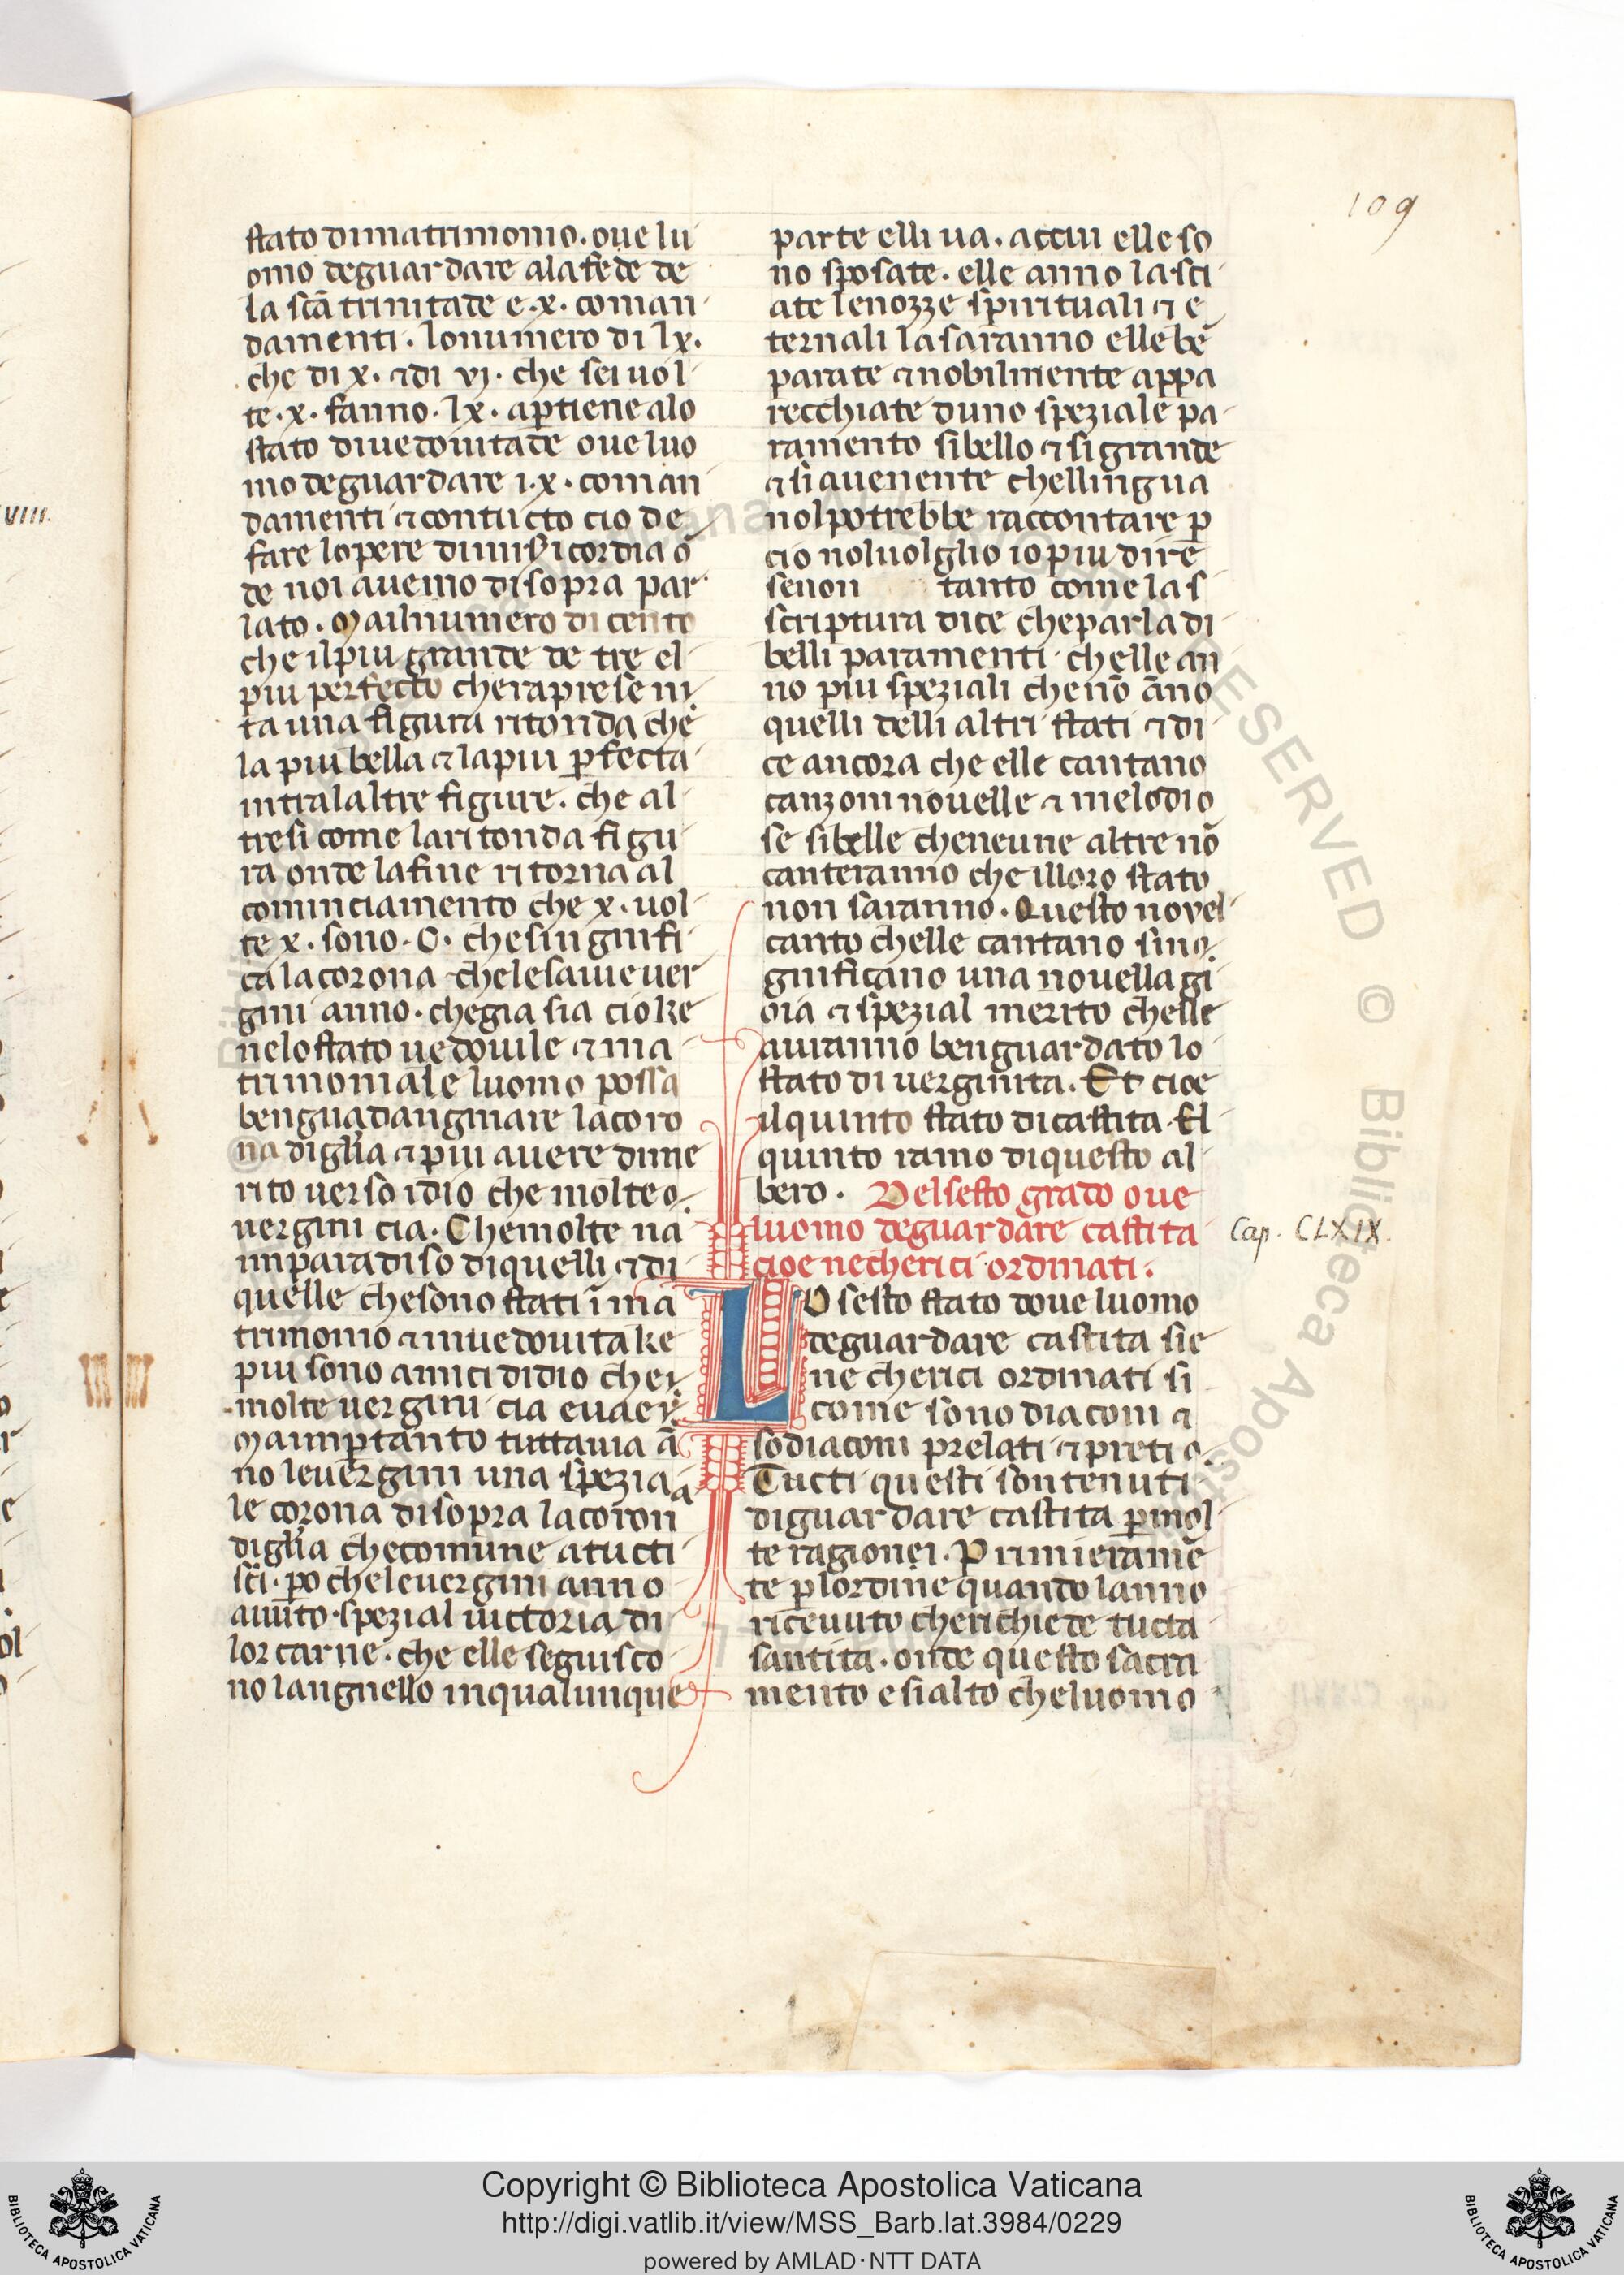 109
stato dimatrimonio. oue lu
omo deguardare ala fede de
la scā trinitade e .x. coman
damenti. lonumero di lx.
che di x. ⁊di vj. che sei uol
te .x. fanno .lx. ap̲tiene alo
stato diuedouitade oue luo
mo deguardare i .x. coman
damenti ⁊contucto cio de
fare lopere di
de noi auemo disopra par
lato. Mailnumero di cento
che ilpiu grande de tre el
piu perfecto cherapresen
ta una figura ritonda che
la piu bella ⁊lapiu p̲fecta
intralaltre figure. che al
tresi come laritonda figu
ra onde lafine ritorna al
cominciamento che x. uol
te x. sono .C. chesingnifi
ca lacorona chelesauie uer
gini anno. chegia sia cioke
nelostato uedouile ⁊ma
trimoniale luomo possa
benguadangniare lacoro
na diglīa ⁊piu auere dime
rito uerso idio che molte
uergini cia. Chemolte na
imparadiso diquelli ⁊di
quelle chesono stati ī ma
trimonio ⁊inuedouita ke
piu sono amici didio che
molte uergini cia
Ma imp̲tanto tuttauia ā
no leuergini una spezia
le corona disopra lacoron
diglīa checomune atucti
sc̄i. po cheleuergini anno
auuto spezial uictoria di
lor carne. che elle seguisco
no langnello inqualunque
parte elli ua. accui elle so
no sposate. elle anno lasci
ate lenozze spirituali ⁊ e
ternali lasaranno elle bē
parate ⁊nobilmente appa
recchiate duno speziale pa
ramento sibello ⁊sigrande
⁊si auenente chellingua
nolpotrebbe raccontare p̲
cio noluolglio io piu dire
senon tanto come la s
scriptura dice cheparla di
belli paramenti chelle an
no piu speziali che nō āno
quelli delli altri stati ⁊di
ce ancora che elle cantano
canzoni nouelle ⁊ melodio
se sibelle cheneune altre nō
canteranno che illoro stato
non saranno. Questo novel
canto chelle cantano sing
gnificano una nouella gi
oia ⁊ spezial merito chelle
auranno benguardato lo
stato di uerginita. Et cioe
ilquinto stato dicastita El
quinto ramo diquesto al
bero. Delsesto grado oue
luomo deguardare castita
cioe necherici ordinati.
Cap. CLXIX.
LO sesto stato doue luomo
deguardare castita sie
ne cherici ordinati si
come sono diaconi ⁊
sodiaconi prelati ⁊preti
Tucti questi sontenuti
diguardare castita p̲mol
te ragionei. Primieramē
te p̲lordine quando lanno
riceuuto cherichiede tucta
santita. onde questo sacra
mento e sialto cheluomo
Copyright © Biblioteca Apostolica Vaticana
http://digi.vatlib.it/view/MSS_Barb.lat.3984/0229
powered by AMLAD·NTT DATA
BIBLIOTECA APOSTOLICA VATICANA
BIBLIOTECA APOSTOLICA VATICANA